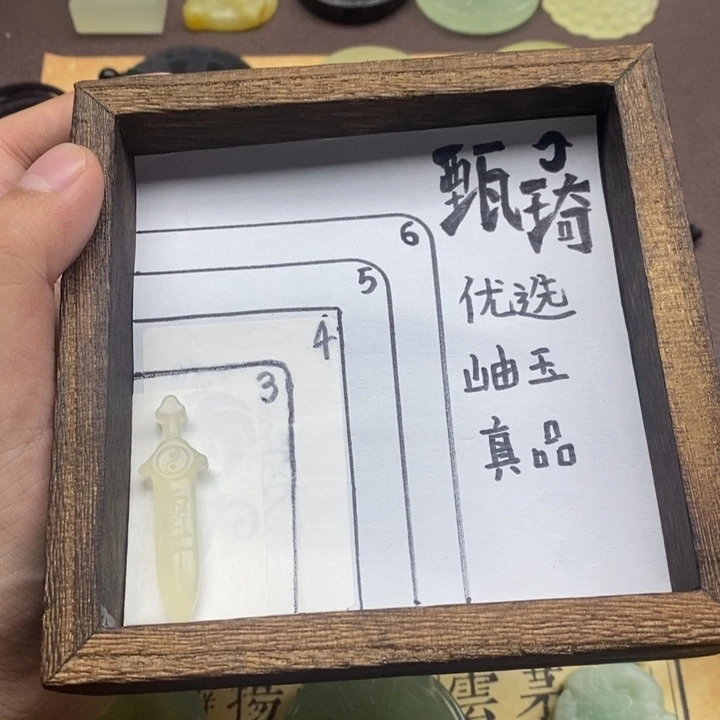 甄琦
优选
岫玉
真品
6
5
4
3
揚
雲